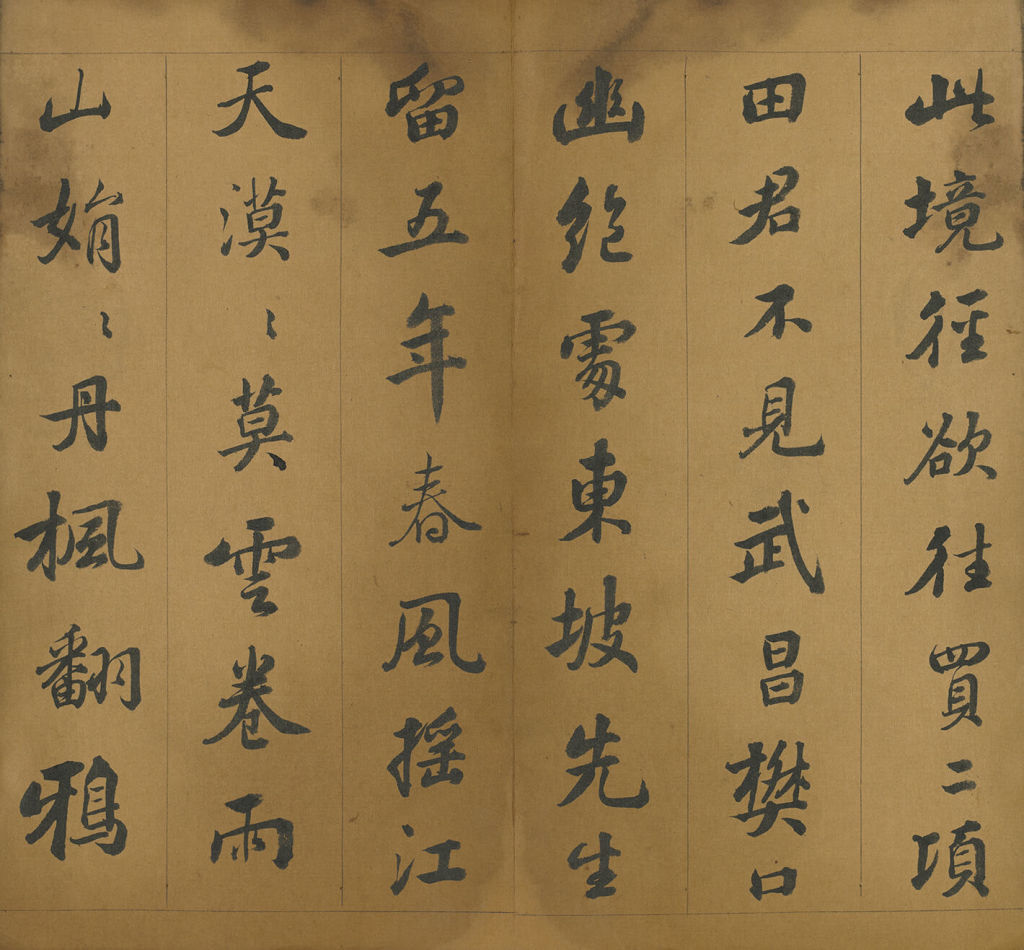 此境徑欲往買二項
田君不見武昌樊口
幽絶處東坡先生
留五年春風摇江
天漠〻莫雲卷雨
山娟〻丹楓翻鴉